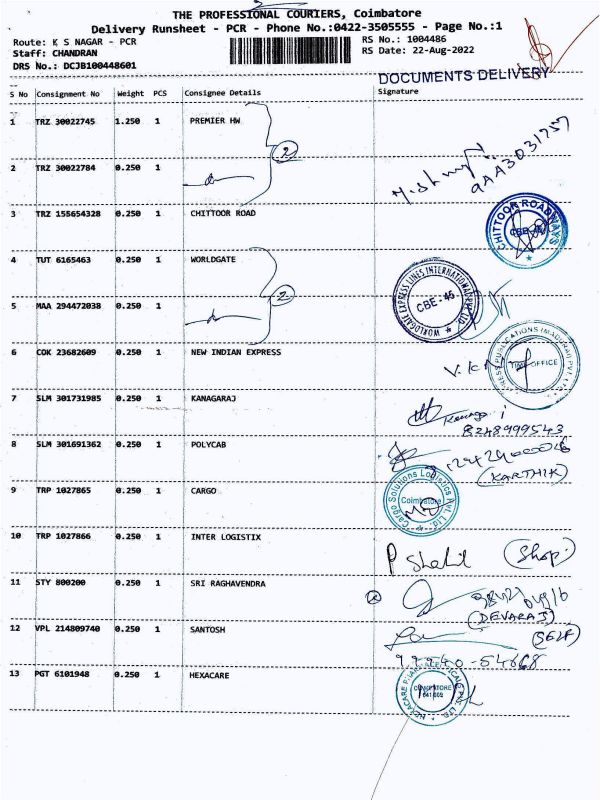 THE PROFESSIONAL COURIERS, Coimbatore
Delivery Runsheet - PCR - Phone No.:0422-3505555 - Page No.:1
Route: K S NAGAR - PCR
RS No.: 1004486
Staff: CHANDRAN
RS Date: 22-Aug-2022
DRS No.: DCJB100448601
DOCUMENTS DELIVERY
S No Consignment No Weight PCS Consignee Details Signature
1 TRZ 30022745 1.250 1 PREMIER HW
2
2 TRZ 30022784 0.250 1
9AA3031757
3 TRZ 155654328 0.250 1 CHITTOOR ROAD
CHITTOOR ROADWAYS
CBE-45
4 TUT 6165463 0.250 1 WORLDGATE
2
WORLDGATE EXPRESS LINES INTERNATIONAL PVT. LTD.
CBE-45
5 MAA 294472038 0.250 1
6 COK 23682609 0.250 1 NEW INDIAN EXPRESS
EXPRESS PUBLICATIONS (MADURAI) PVT. LTD.
TIME OFFICE
7 SLM 301731985 0.250 1 KANAGARAJ
8248999543
8 SLM 301691362 0.250 1 POLYCAB
(KARTHIK)
9 TRP 1027865 0.250 1 CARGO
Cargo Solutions Logistics Pvt. Ltd.
Coimbatore
10 TRP 1027866 0.250 1 INTER LOGISTIX
(Shop)
11 STY 800200 0.250 1 SRI RAGHAVENDRA
(DEVARAJ)
12 VPL 214809740 0.250 1 SANTOSH
(SELF)
99940-54668
13 PGT 6101948 0.250 1 HEXACARE
COIMBATORE